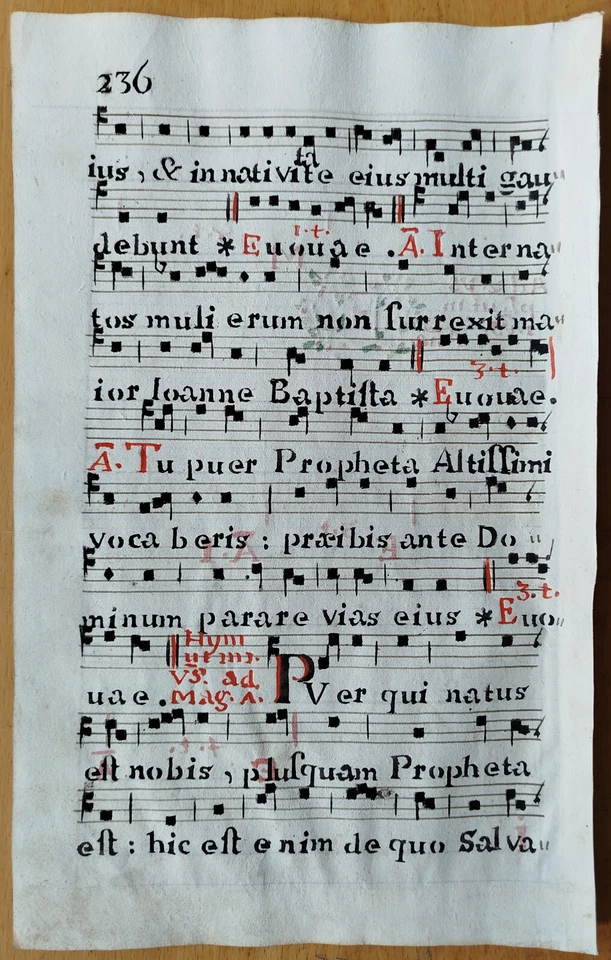 236
ta
ius, & in nativite eius multi gau„
debunt * Euouae. A. Inter na„
1. t.
tos muli erum non ſurrexit ma„
ior Ioanne Baptiſta * Euouae.
3. t.
A. Tu puer Propheta Altiſſimi
voca beris : præibis ante Do„
minum parare vias eius * Euo„
3. t.
uae. Hym
ut
Vs. ad
Mag. A. PVer qui natus
eſt nobis, pluſquam Propheta
eſt : hic eſt e nim de quo Sal va„